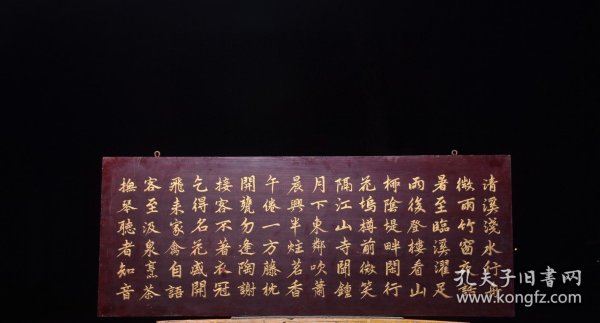 清溪淺水行舟
微雨竹窗夜話
暑至臨溪濯足
雨後登樓看山
柳陰堤畔閒行
花塢樽前微笑
隔江山寺聞鐘
月下東鄰吹簫
晨興半炷茗香
午倦一方藤枕
開甕勿逢陶謝
接客不著衣冠
乞得名花盛開
飛來家禽自語
客至汲泉烹茶
撫琴聽者知音
孔夫子旧书网
kongfz.com